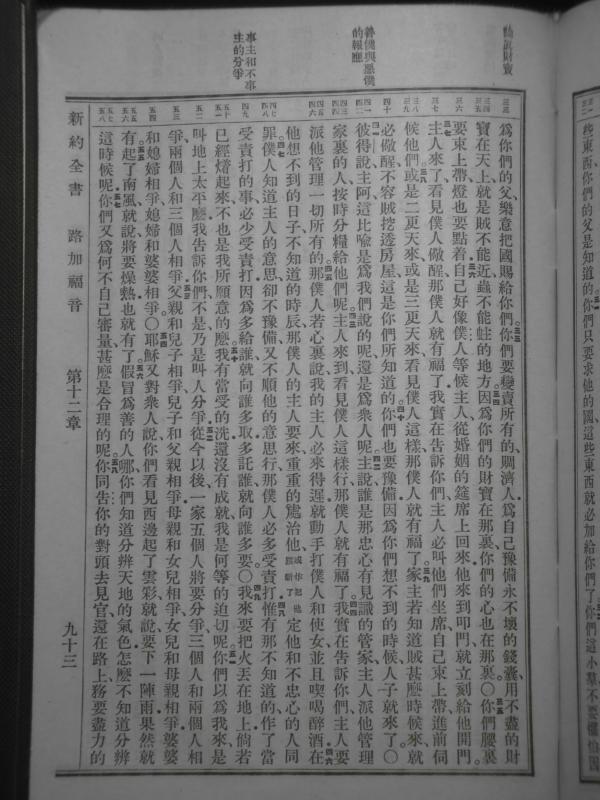 些東西你們的父是知道的你們只要求他的國這些東西就必加給你們了你們這小羣不要懼怕因
善僕與惡僕
的報應
事主和不事
主的分爭
爲你們的父樂意把國賜給你們你們要變賣所有的賙濟人爲自己豫備永不壞的錢囊用不盡的財
寶在天上就是賊不能近蟲不能蛀的地方因爲你們的財寶在那裏你們的心也在那裏〇你們腰裏
要束上帶燈也要點着自己好像僕人等候主人從婚姻的筵席上回來他來到叩門就立刻給他開門
主人來了看見僕人儆醒那僕人就有福了我實在告訴你們主人必叫他們坐席自己束上帶進前伺
候他們或是二更天來或是三更天來看見僕人這樣那僕人就有福了家主若知道賊甚麼時候來就
必儆醒不容賊挖透房屋這是你們所知道的你們也要豫備因爲你們想不到的時候人子就來了〇
彼得說主阿這比喻是爲我們說的呢還是爲衆人呢主說誰是那忠心有見識的管家主人派他管理
家裏的人按時分糧給他們呢主人來到看見僕人這樣行那僕人就有福了我實在告訴你們主人要
派他管理一切所有的那僕人若心裏說我的主人必來得遲就動手打僕人和使女並且喫喝醉酒在
他想不到的日子不知道的時辰那僕人的主人要來重重的懲治他或作把他腰斬了定他和不忠心的人同
罪僕人知道主人的意思卻不豫備又不順他的意思行那僕人必多受責打惟有那不知道的作了當
受責打的事必少受責打因爲多給誰就向誰多取多託誰就向誰多要〇我來要把火丟在地上倘若
已經燒起來不也是我所願意的麼我有當受的洗還沒有成就我是何等的迫切呢你們以爲我來是
叫地上太平麼我告訴你們不是乃是叫人分爭從今以後一家五個人將要分爭三個人和兩個人相
爭兩個人和三個人相爭父親和兒子相爭兒子和父親相爭母親和女兒相爭女兒和母親相爭婆婆
和媳婦相爭媳婦和婆婆相爭〇耶穌又對衆人說你們看見西邊起了雲彩就說要下一陣雨果然就
有起了南風就說將要燥熱也就有了假冒爲善的人哪你們知道分辨天地的氣色怎麼不知道分辨
這時候呢你們又爲何不自己審量甚麼是合理的呢你同告你的對頭去見官還在路上務要盡力的
新約全書　路加福音　第十二章　九十三